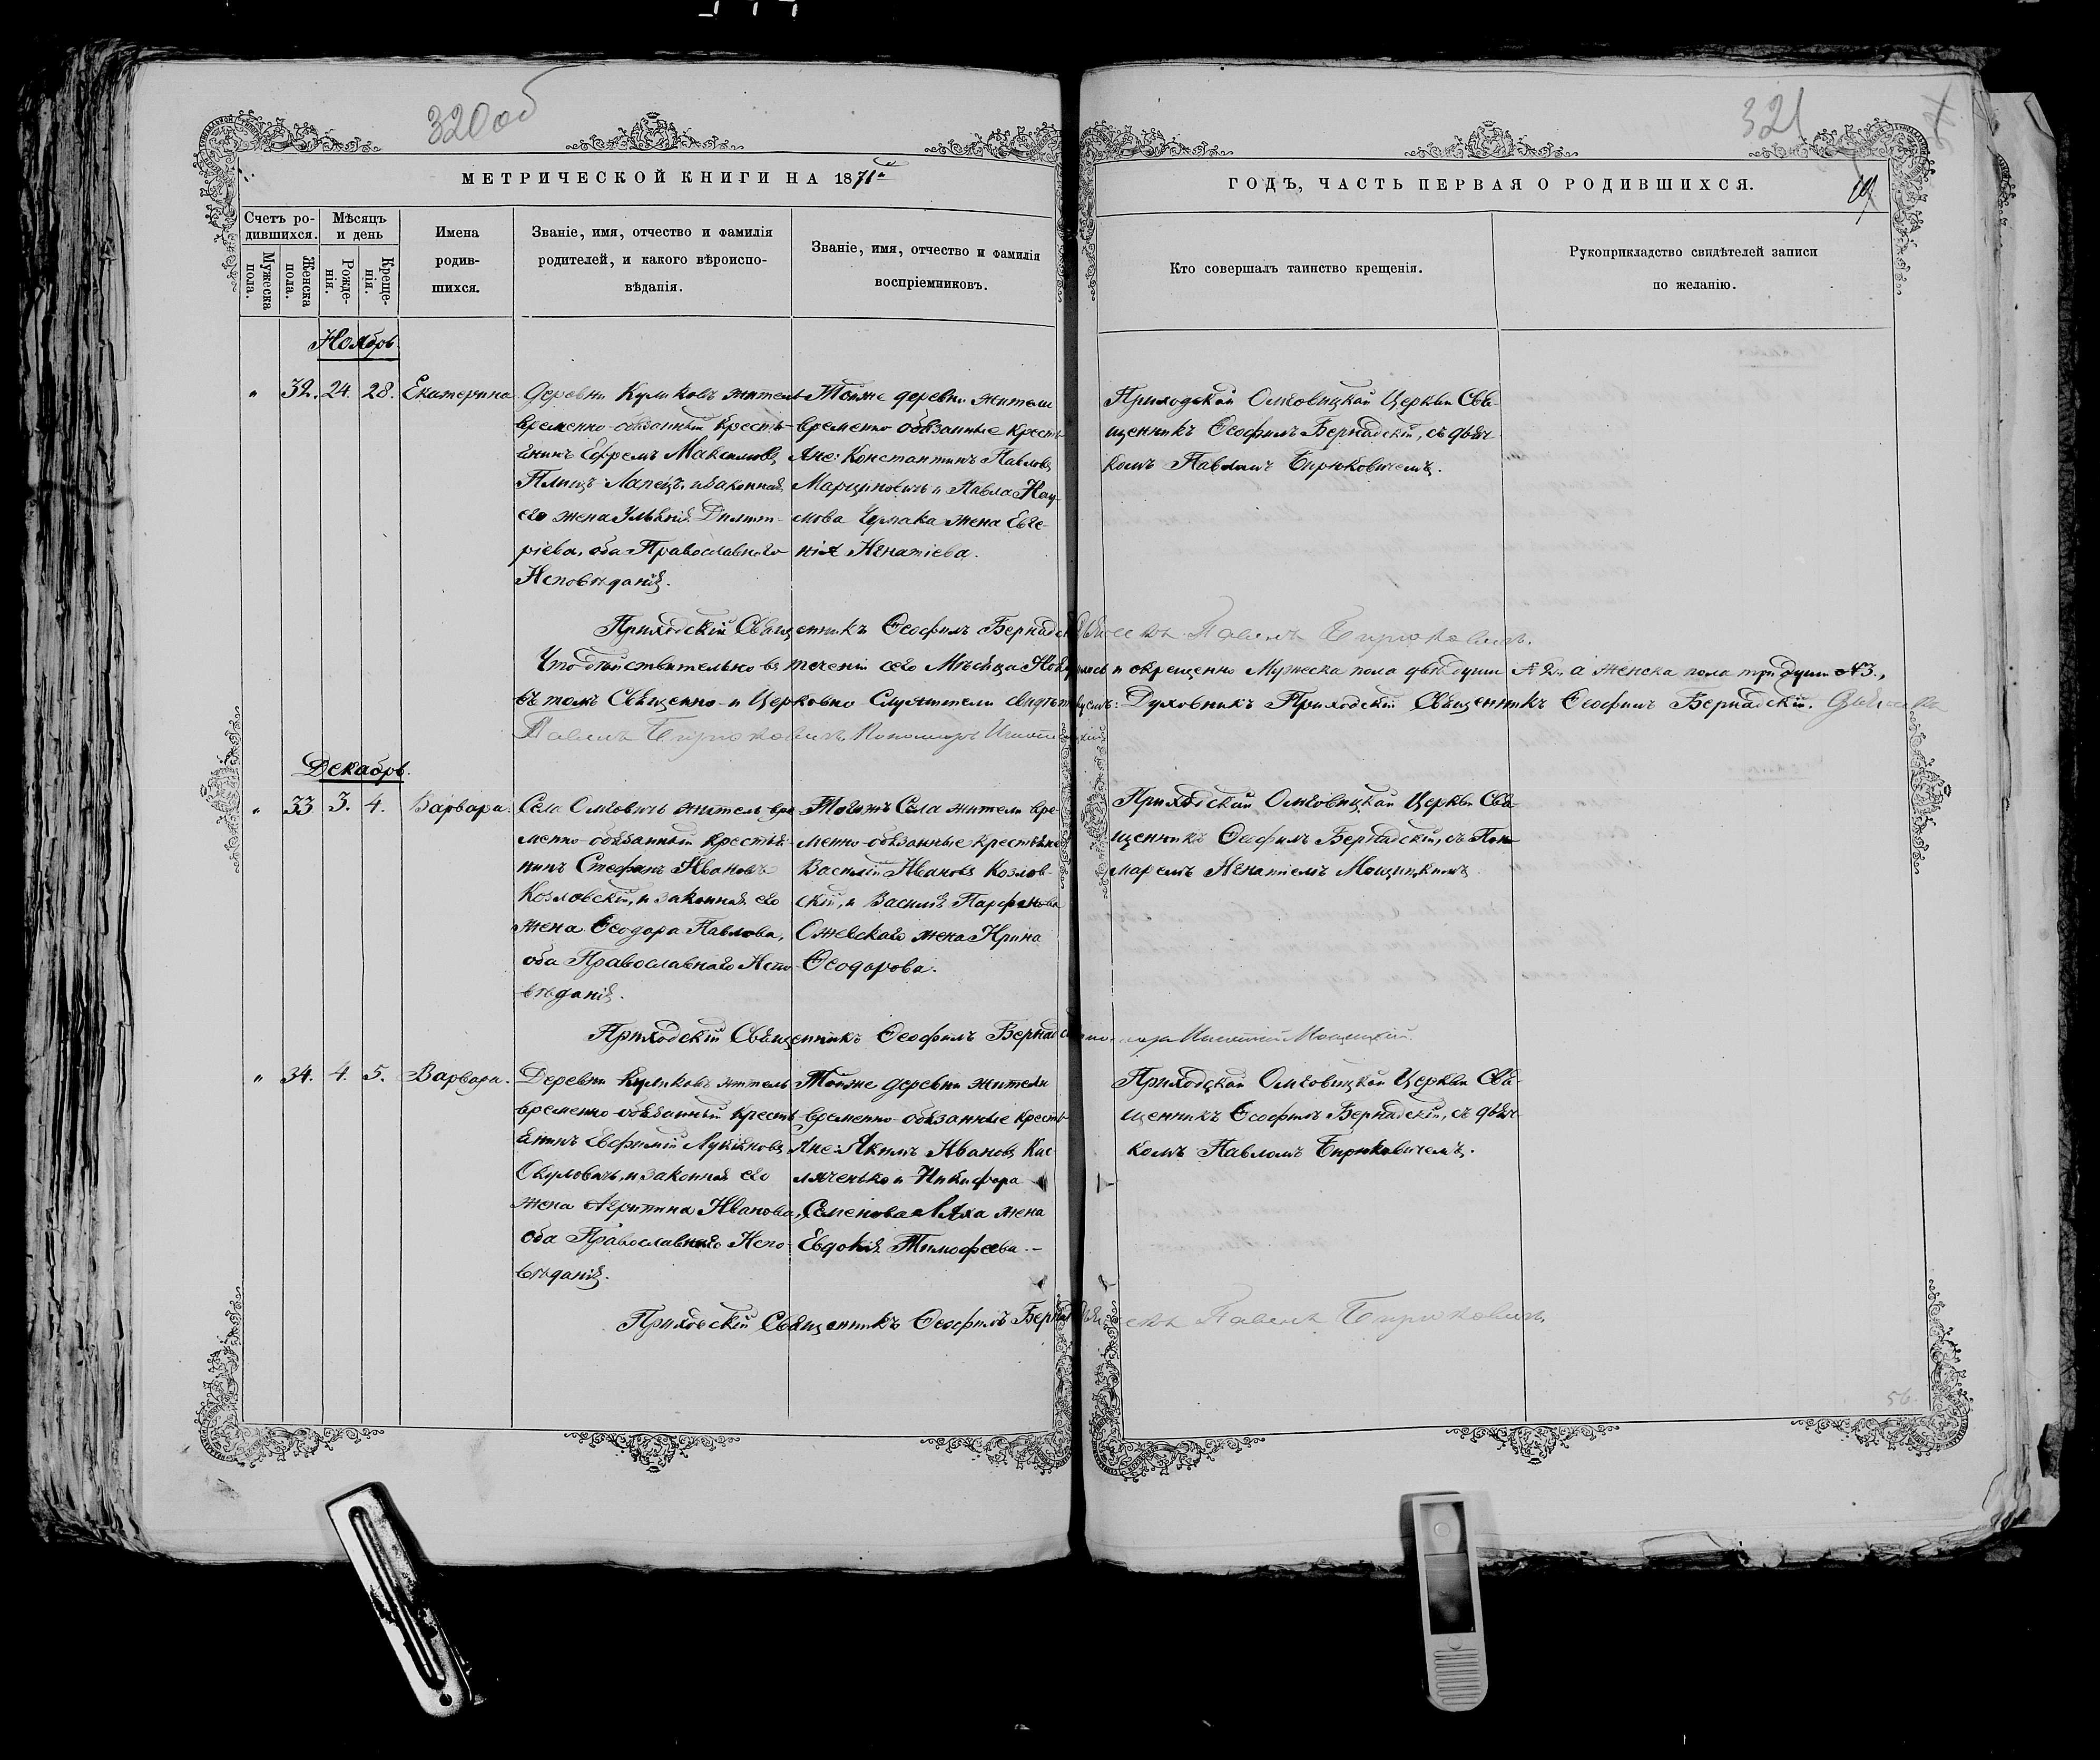 320 об
321
МЕТРИЧЕСКОЙ КНИГИ НА 1871й
ГОДЪ, ЧАСТЬ ПЕРВАЯ О РОДИВШИХСЯ.
Счетъ ро-
дившихся.
Мужеска
пола.
Женска
пола.
Мѣсяцъ
и день
Рожде-
нія.
Креще-
нія.
Имена
родив-
шихся.
Званіе, имя, отчество и фамилія
родителей, и какого вѣроиспо-
вѣданія.
Званіе, имя, отчество и фамилія
воспріемниковъ.
Кто совершалъ таинство крещенія.
Рукоприкладство свидѣтелей записи
по желанію.
Ноябрь
" 32. 24. 28. Екатерина
Деревни Куликовъ житель
временно-обязанный кресть-
янинъ Ефремъ Максимовъ
законная
его жена Дмит-
ріева, оба Православнаго
Исповѣданія.
Тойже деревни жители
временно обязанные кресть-
яне: Константинъ Павловъ
Марциновичъ и Павла Нау-
мова Чермака жена Евге-
нія Игнатіева.
Приходской Омговицкой Церкви Свя-
щенникъ Ѳеофилъ Бернадскій, съ дьяч-
комъ Павломъ Бирюковичемъ.
Приходскій Священникъ Ѳеофилъ Бернадскій Дьячекъ Павелъ Бирюковичъ.
Что дѣйствительно въ теченіи сего Мѣсяца Ноября и окрещенно Мужеска пола двѣ души № 2., а женска пола три души № 3.,
въ томъ Священно- и Церковно Служители свидѣтельствуемъ: Духовникъ Приходскій Священникъ Ѳеофилъ Бернадскій. Дьячекъ
Павелъ Бирюковичъ Пономарь Игнатій
Декабрь.
" 33 3. 4. Варвара.
Села Омговичъ житель вре-
менно-обязанный крестья-
нинъ Стефанъ Ивановъ
Козловскій, и законная его
жена Ѳеодора Павлова,
оба Православнаго Испо-
вѣданія.
Тогожъ Села жители вре-
менно-обязанные крестьяне
Василій Ивановъ Козлов-
скій, и Василія Парфенова
жена Ирина
Ѳеодорова.
Приходской Омговицкой Церкви Свя-
щенникъ Ѳеофилъ Бернадскій, съ Поно-
маремъ Игнатіемъ Мощицкимъ.
Приходскій Священникъ Ѳеофилъ Бернадскій Пономарь Игнатій Мощицкій.
" 34. 4. 5. Варвара.
Деревни Куликовъ житель
временно-обязанный кресть-
янинъ Евфимій Лукьяновъ
и законная его
жена Ивановна,
оба Православнаго Испо-
вѣданія.
Тойже деревни жители
временно-обязанные кресть-
яне: Якимъ Ивановъ Кис-
ляченько и Никифора
Семенова Ляха жена
Евдокія Тимофеева.–
Приходской Омговицкой Церкви Свя-
щенникъ Ѳеофилъ Бернадскій, съ дьяч-
комъ Павломъ Бирюковичемъ.
Приходскій Священникъ Ѳеофилъ Бернадскій Дьячекъ Павелъ Бирюковичъ.
56.